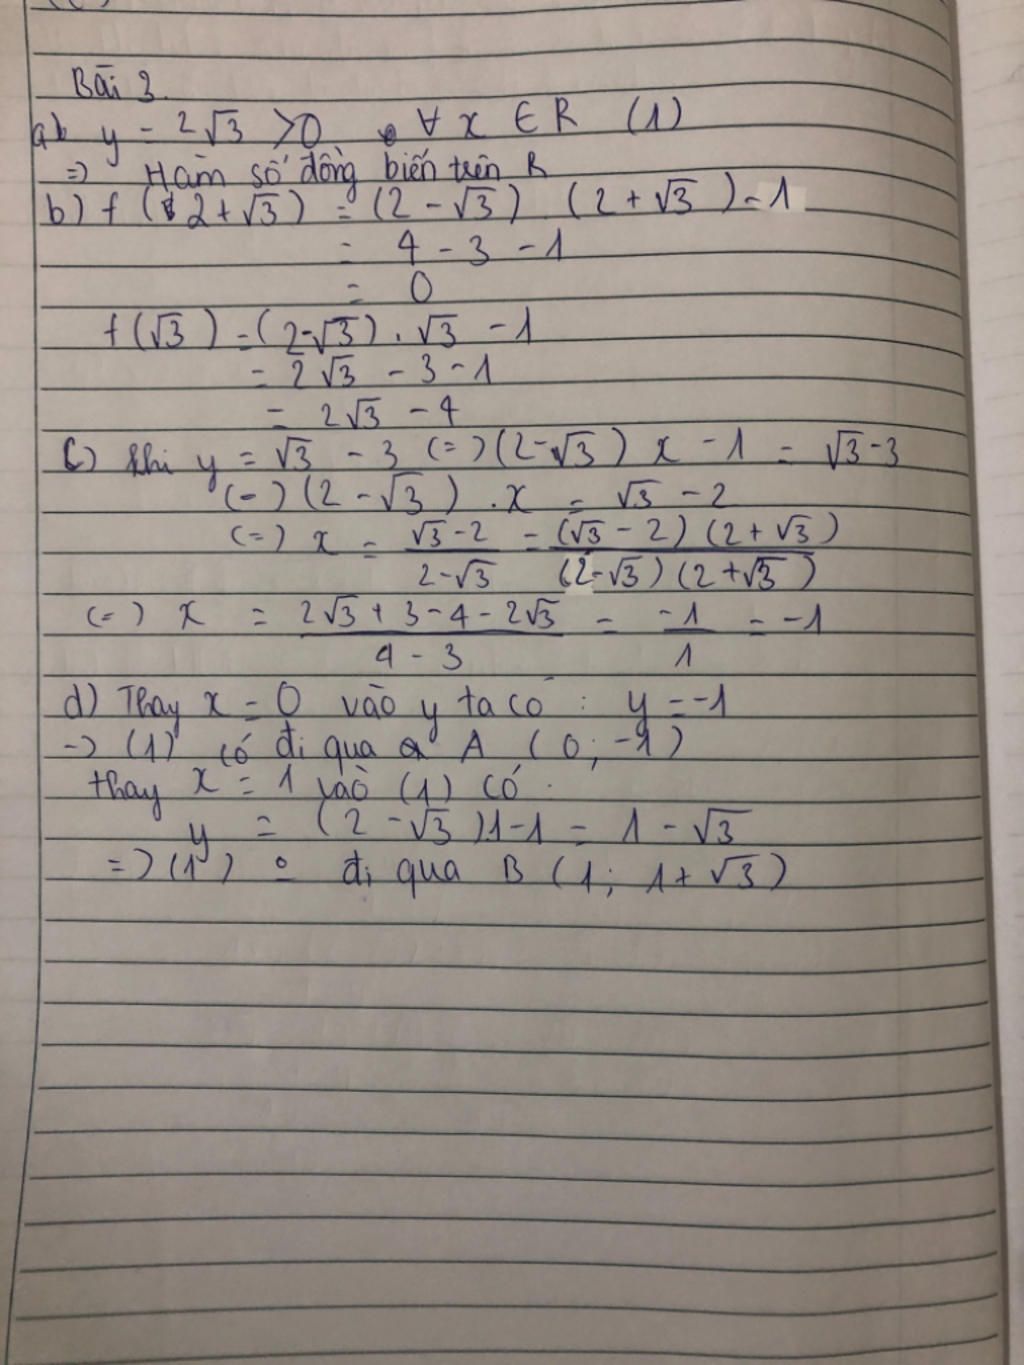 Bài 3.
a) y = 2√3 > 0 ∀ x ∈ R (1)
=> Hàm số đồng biến trên R
b) f ( 2 + √3 ) = (2 - √3) . (2 + √3 ) - 1
= 4 - 3 - 1
= 0
f (√3 ) = (2-√3) . √3 - 1
= 2√3 - 3 - 1
= 2√3 - 4
c) khi y = √3 - 3 (=) (2-√3) x - 1 = √3 - 3
(=) (2 - √3) . x = √3 - 2
(=) x = (√3 - 2)/(2 - √3) = ((√3 - 2) (2 + √3))/((2-√3) (2 + √3))
(=) x = (2√3 + 3 - 4 - 2√3)/(4 - 3) = (-1)/1 = -1
d) Thay x = 0 vào y ta có : y = -1
-> (1) có đi qua A ( 0 ; -1 )
thay x = 1 vào (1) có :
y = (2 - √3 ) 1 - 1 = 1 - √3
=> (1) đi qua B (1 ; 1 + √3 )